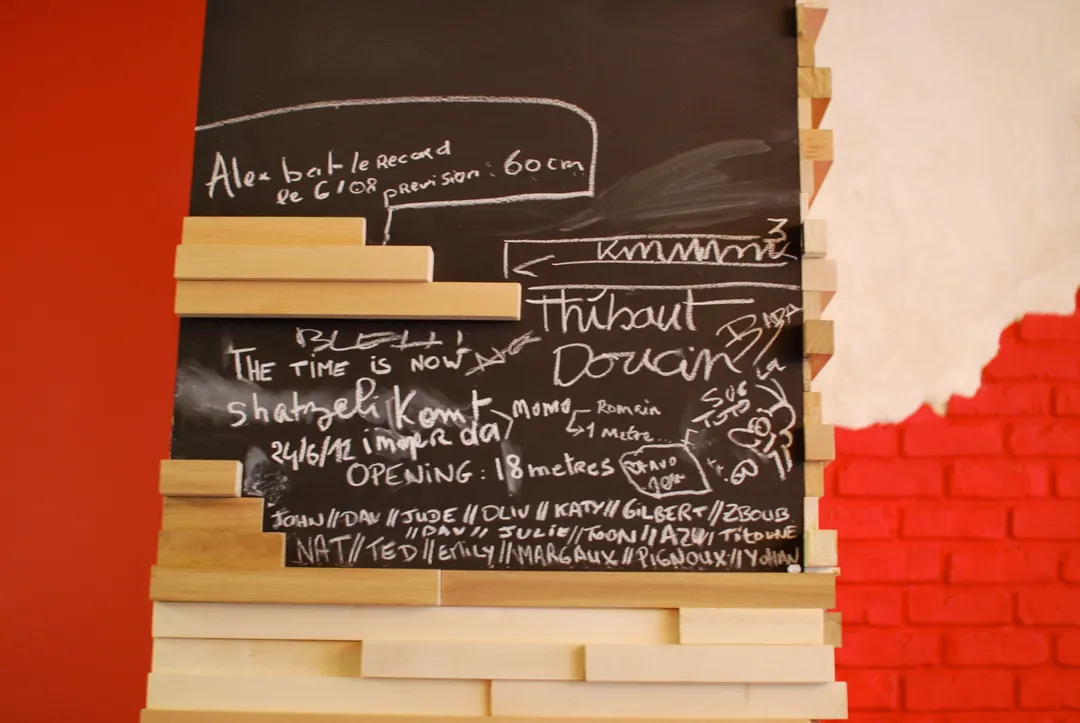 Alex bat le Record
le 6/08 prevision : 60 cm
Thibaut
Dorian
BLEU!
THE TIME IS NOW
shatzeli Komt
MOMO
Romain
1 Metre...
24/6/12
OPENING : 18 metres
JOHN // DAV // JUDE // OLIV // KATY // GILBERT // ZBOUB
// DAV // JULIE // TOON // AZU // Titoune
NAT // TED // Emily // MARGAUX // PIGNOUX // YOHAN